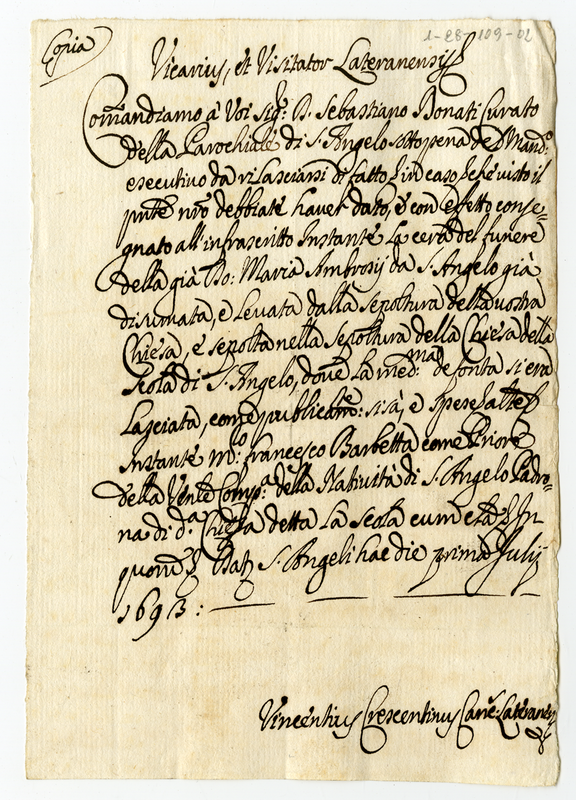 1-28-109-02
Copia
Vicarius, et Visitator Lateranensis
Comandiamo à Voi Sig.r D. Sebastiano Donati Curato
della Parochiale di S. Angelo sotto pena del Mand.o
esecutivo da rilasciarsi di fatto in caso che visto il
pnte nro debbiate haver dato, e con effetto conse=
gnato all'infrascritto Instante la cera del funere
della già Bo: Maria Ambrosij da S. Angelo già
disumata, e levata dalla sepoltura della vostra
Chiesa, e sepolta nella sepoltura della Chiesa della
Scola di S. Angelo, dove la med.ma defonta si era
lasciata, come publicam.te si sà, e spese
Instante m.o Francesco Barbetta come Priore
della Vente Comp.a della Natività di S. Angelo Padro=
na di d.a Chiesa detta la Scola cum In
quorum S. Angeli hac die prima Julij
1693:
Vincentius Crescentinus Can.e: Lateranen